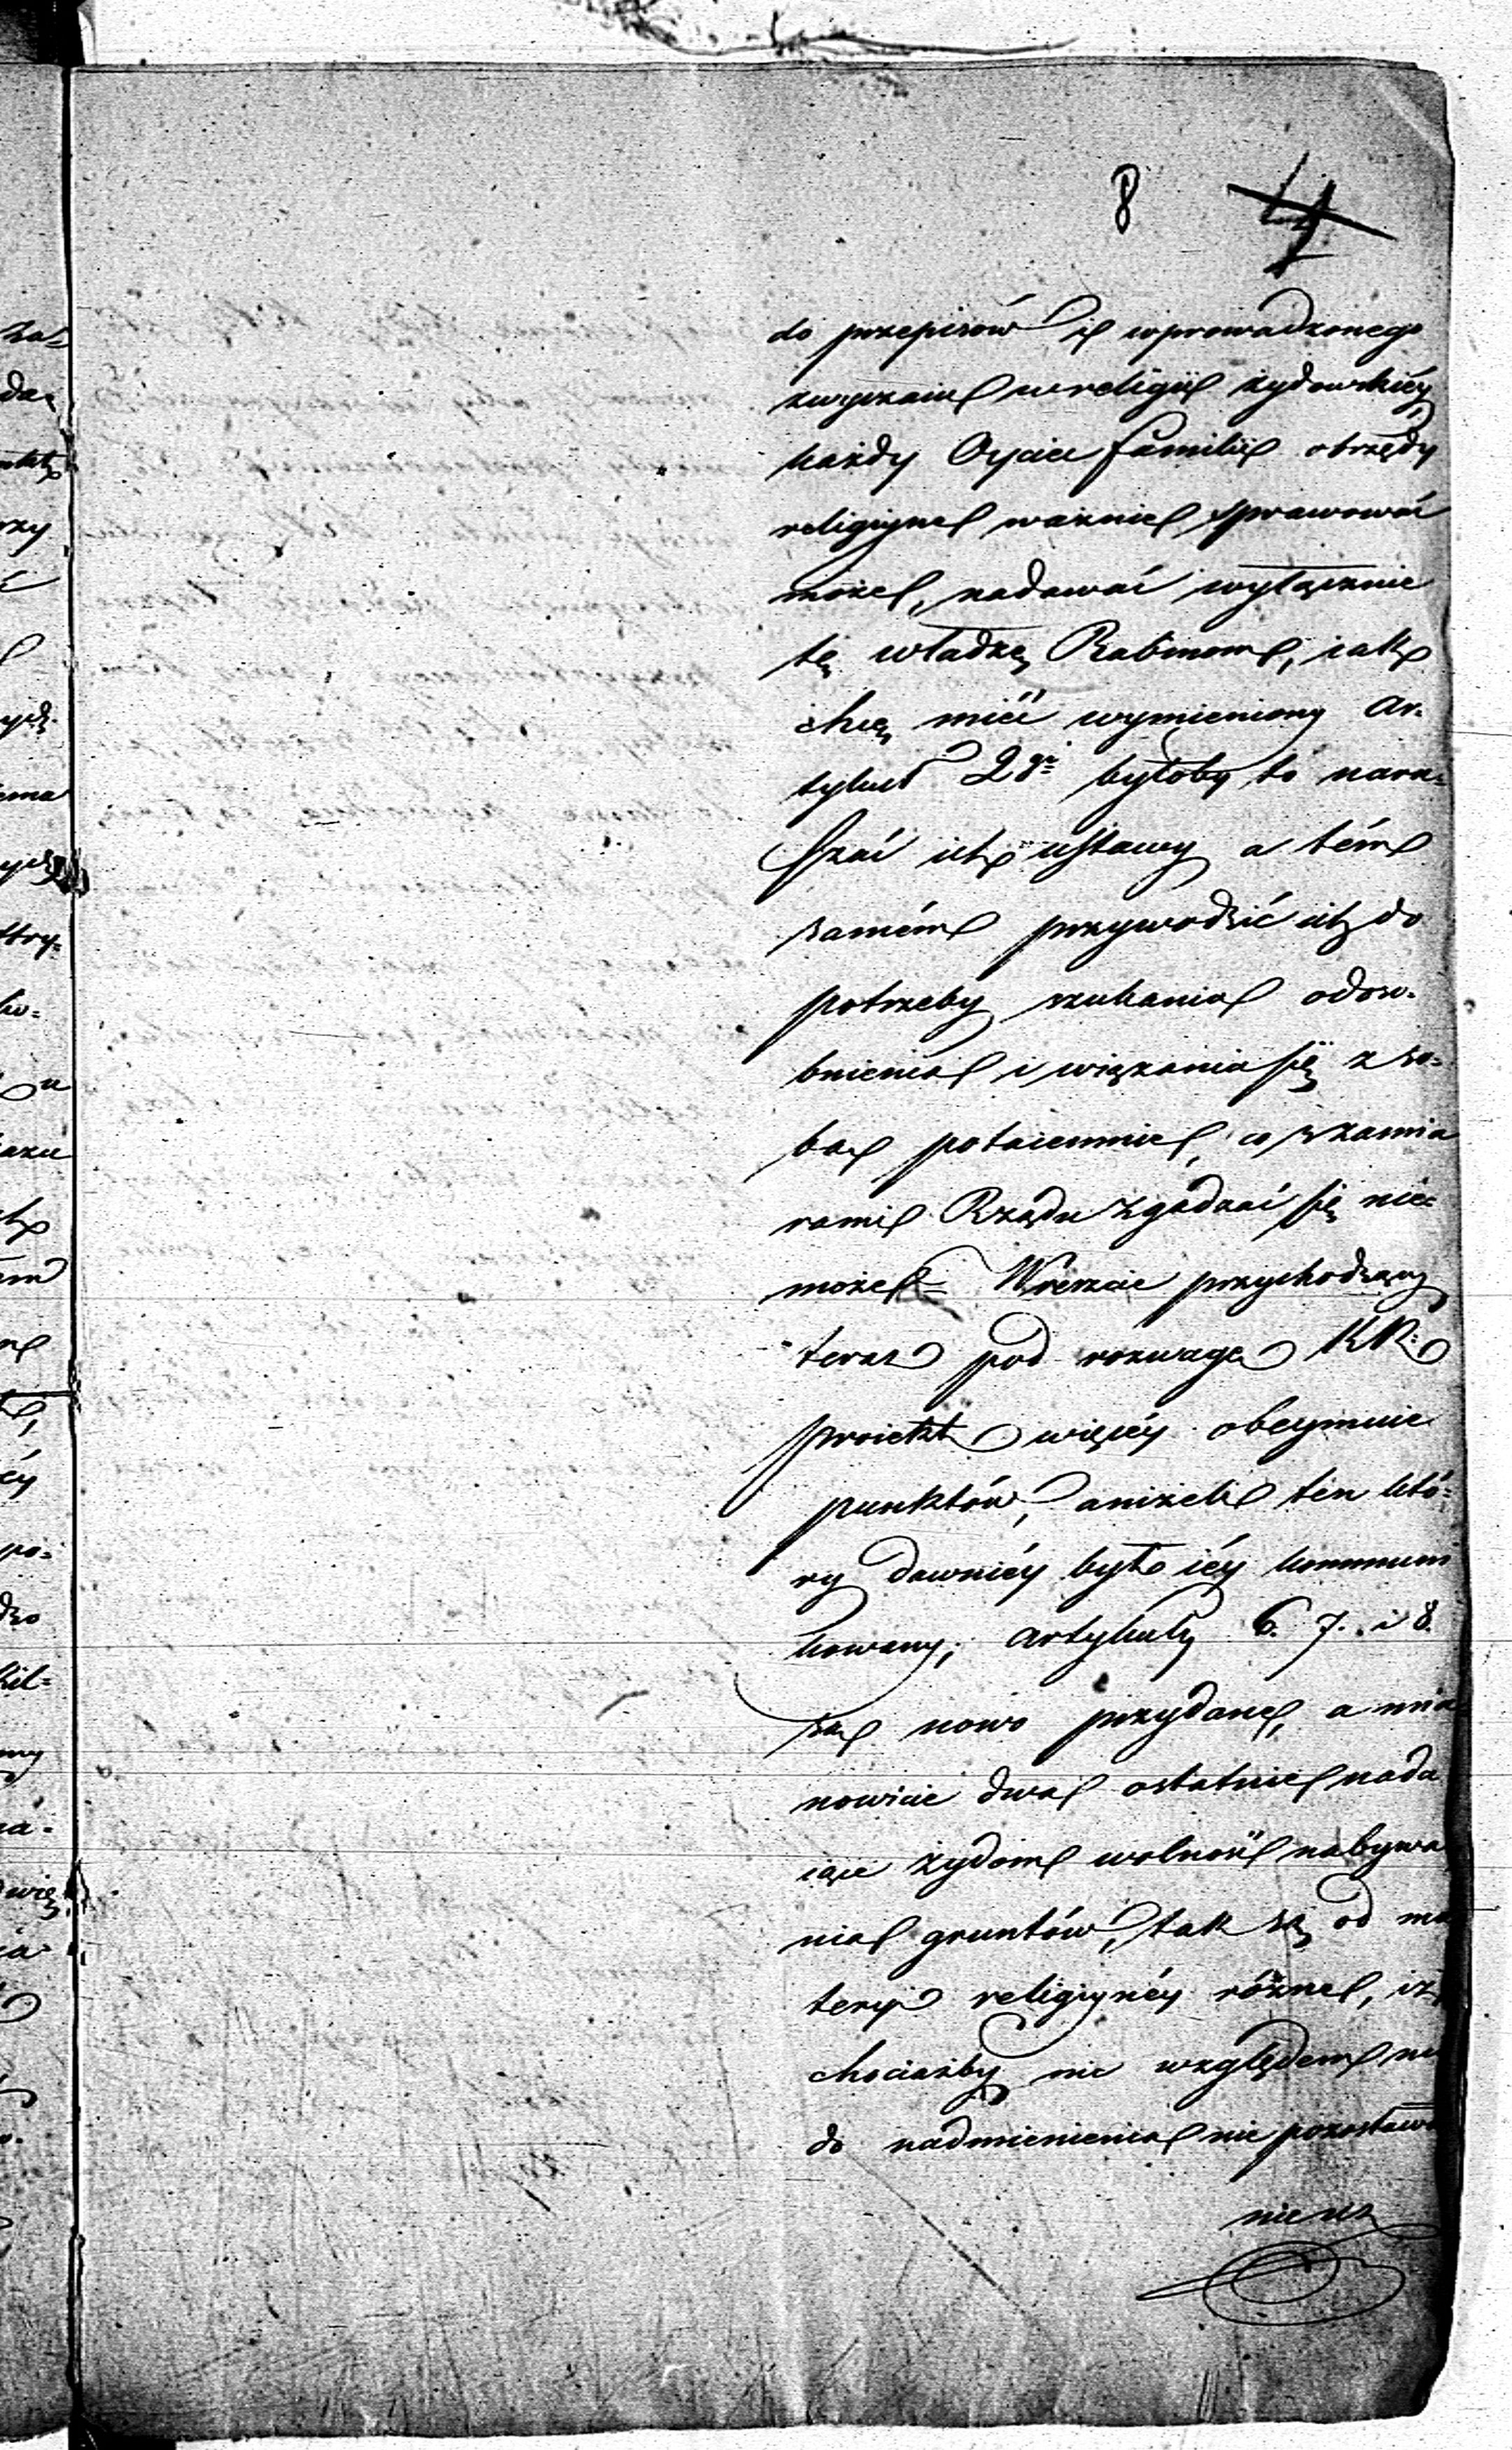 8 4
do przepisów i wprowadzonego
zwyczaiu w religii żydowskiéy
każdy Oyciec familii obrzędy
religiyne ważnie sprawować
może, nadawać wyłącznie
tę władzę Rabinom, iak
chce mieć wymieniony Ar-
tykuł 2gi byłoby to naru-
szać ich ustawy a tém
samém przywodzić ich do
potrzeby szukania odoso-
bnienia i wiązania się z so-
bą potaiemnie, co z zamia
rami Rządu zgadzać się nie
może = Wreszcie przychodzący
teraz pod rozwagę KR:
proiekt więcéy obeymuie
punktów, aniżeli ten któ-
ry dawniéy był iéy kommuni
kowany; Artykuły 6. 7. i 8.
są nowo przydane, a mia
nowicie dwa ostatnie nada
iące żydom wolność nabywa
nia gruntów, tak są od ma
teryi religiynéy różne, iż
chociażby nic względem
do nadmienienia nie pozostawa